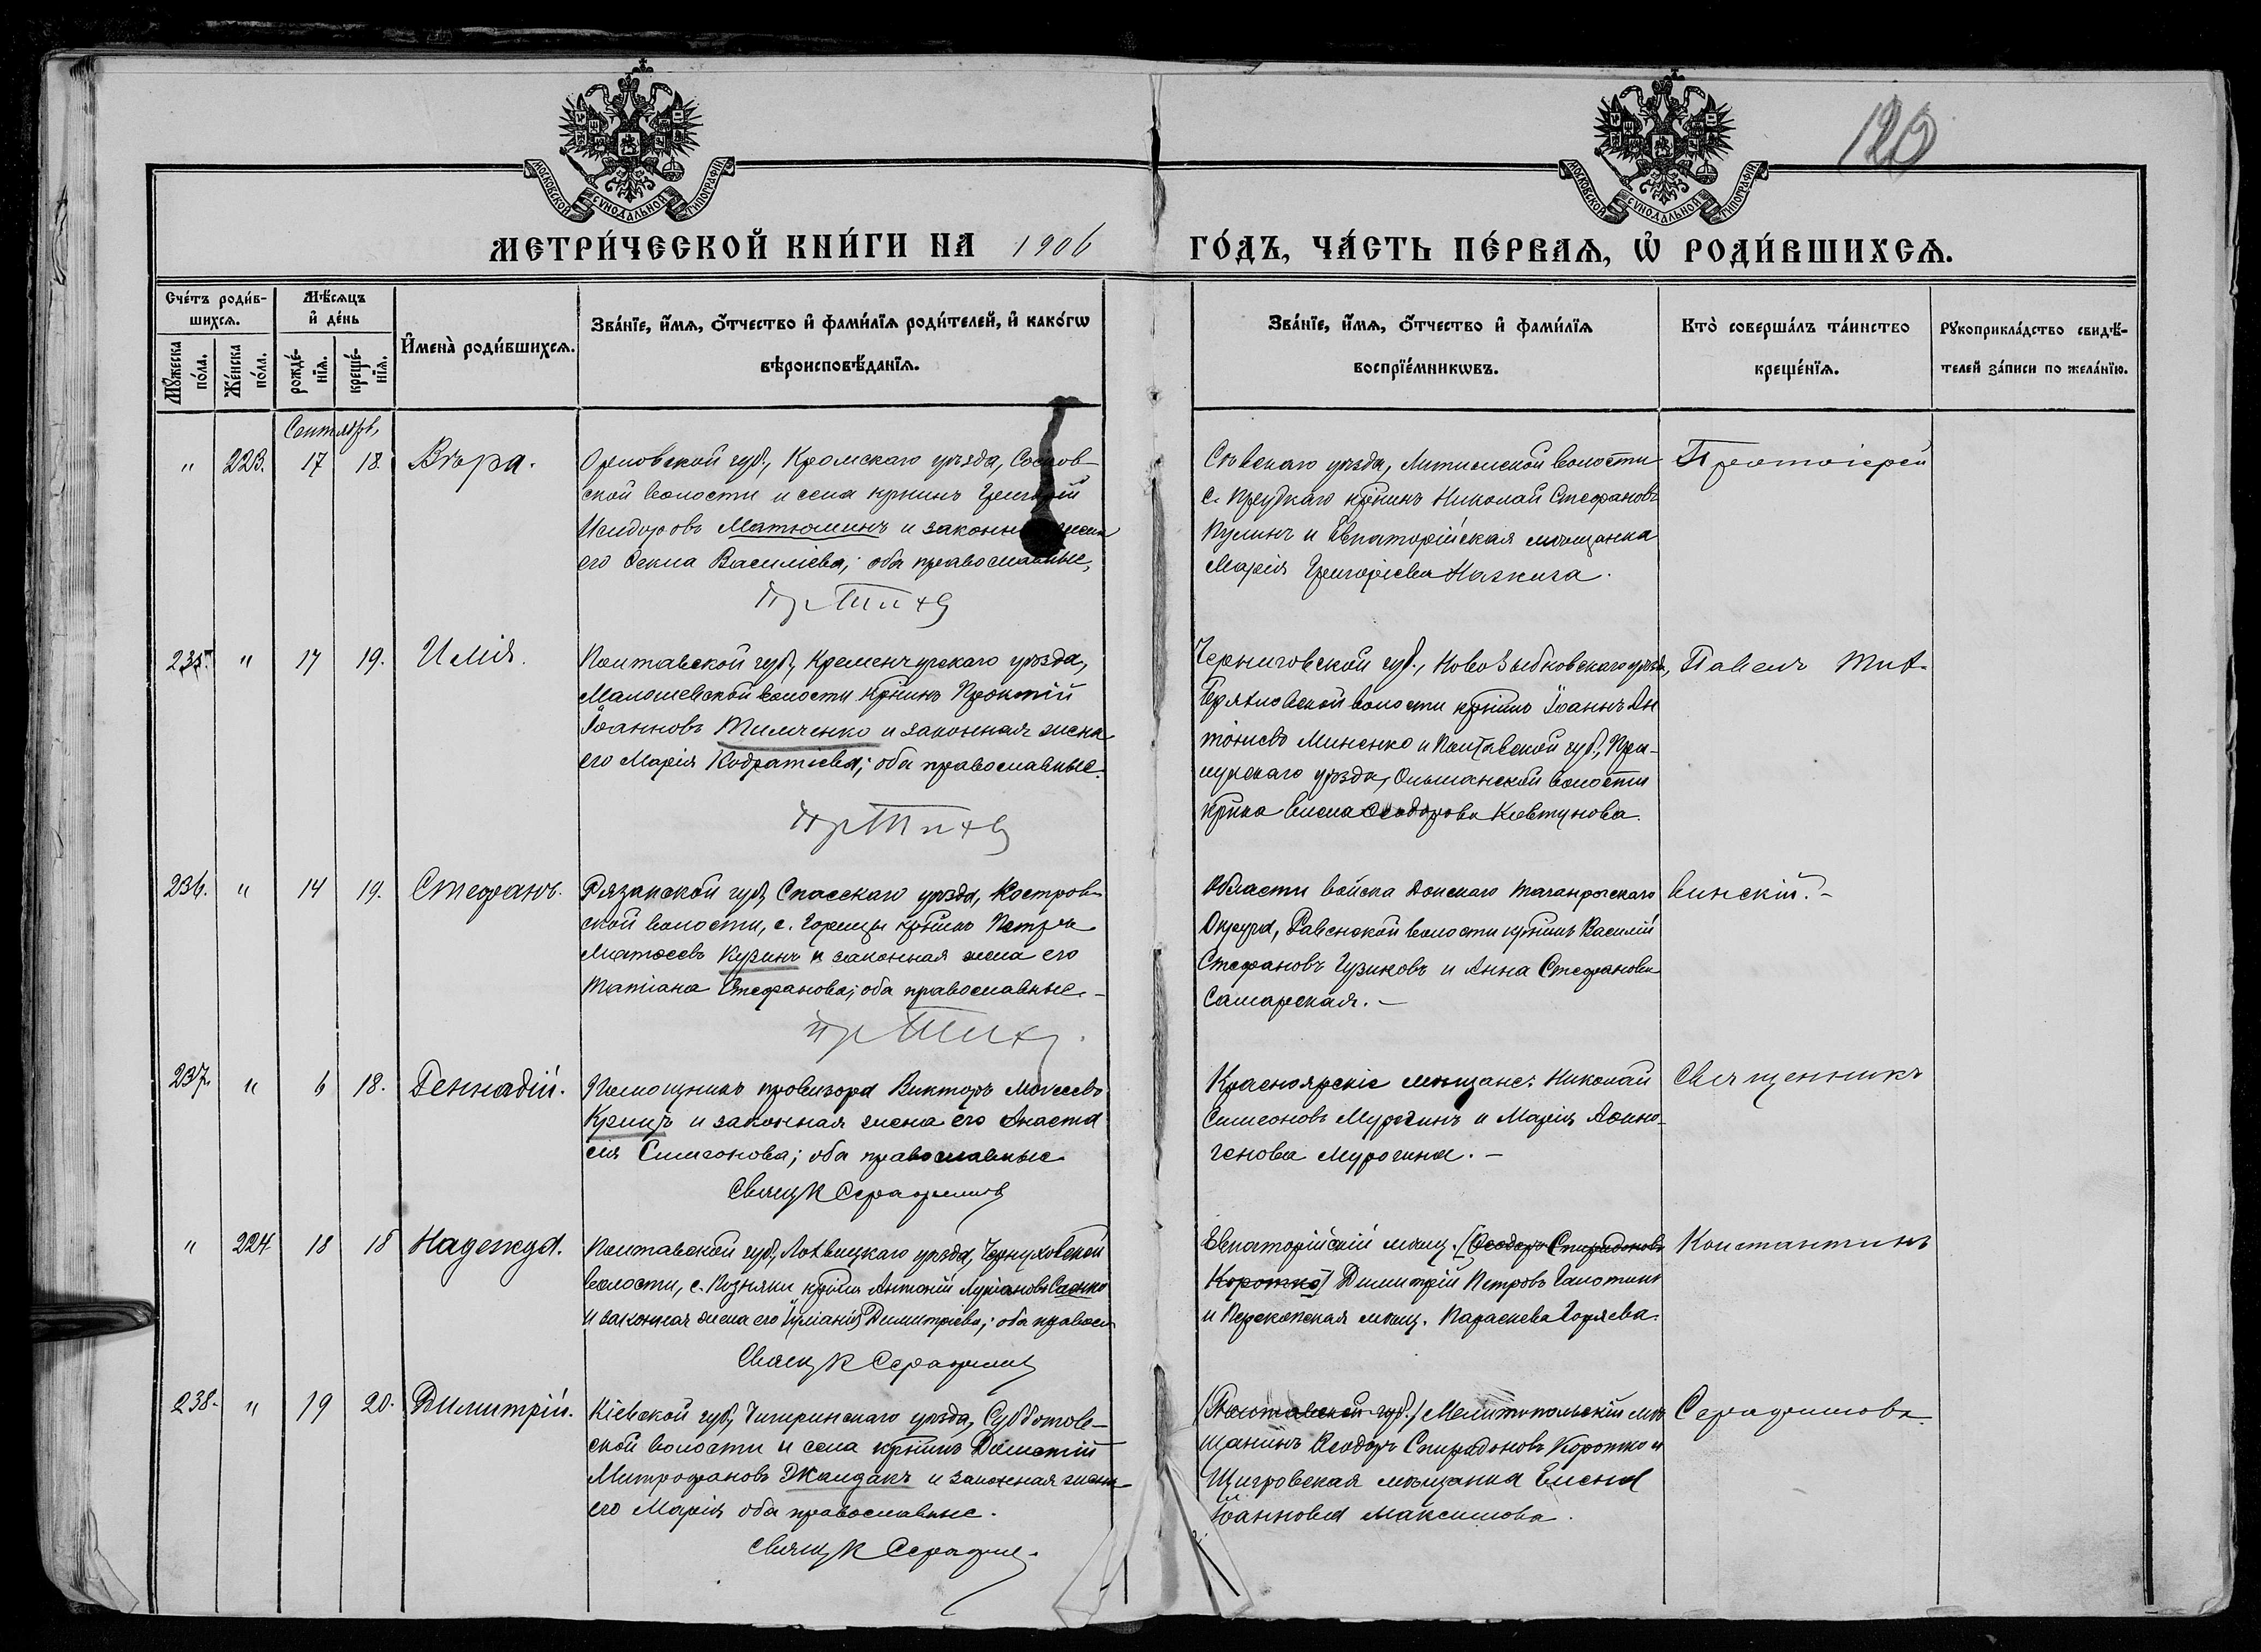 120
МОСКОВСКОЙ СѴНОДАЛЬНОЙ ТИПОГРАФІИ
МОСКОВСКОЙ СѴНОДАЛЬНОЙ ТИПОГРАФІИ
МЕТРИ́ЧЕСКОЙ КНИ́ГИ НА 1906 ГО́ДЪ, ЧА́СТЬ ПЕ́РВАѦ, Ѡ҆ РОДИ́ВШИХСѦ.
Сче́тъ роди́в-
шихсѧ.
Мꙋ́жеска по́ла.
Же́нска по́ла.
Мѣ́сѧцъ
и҆ де́нь
рожде́-
нїѧ.
креще́-
нїѧ.
И҆мена̀ роди́вшихсѧ.
Зва́нїе, и҆́мѧ, ѻ҆́тчество и҆ фами́лїѧ роди́телей, и҆ како́гѡ
вѣроисповѣ́данїѧ.
Зва́нїе, и҆́мѧ, ѻ҆́тчество и҆ фами́лїѧ
воспрїе́мникѡвъ.
Кто̀ соверша́лъ та́инство
креще́нїѧ.
Рꙋкоприкла́дство свидѣ́-
телей за́писи по жела́нїю.
Сентябрь
" 223. 17 18. Вѣра.
Орловской губ., Кромскаго уѣзда, Сосков-
ской волости и села крнинъ Григорій
Исидоровъ Матюшинъ и законн жена
его Ѳекла Василіева; оба православные,
Севскаго уѣзда,
с. крнинъ Николай Стефановъ
и Евпаторійская мѣщанка
Марія Григоріева
Протоіерей
235. " 17 19. Илія.
Полтавской губ., Кременчугскаго уѣзда,
волости крнинъ
Іоанновъ Тимченко и законная жена
его Марія Кодратіева; оба православные.
Черниговской губ., Новозыбковскаго уѣзда,
волости крнинъ Іоаннъ Ан
тоніевъ Миненко и Полтавской губ., При-
лукскаго уѣзда, Ольшанской волости
Ѳеодорова Ковтунова.
Павелъ Тих-
236. " 14 19. Стефанъ.
Рязанской губ., Спасскаго уѣзда, Костров-
ской волости, с. крнинъ Петръ
Матѳеевъ Кузинъ и законная жена его
Татіана Стефанова; оба православные.-
Области войска Донскаго Таганрогскаго
Округа, волости крнинъ Василій
Стефановъ Гузиковъ и Анна Стефанова
Самарская.-
винскій.-
237. " 6 18. Геннадій.
Помощникъ провизора Викторъ Моѵсеевъ
и законная жена его Анаста
сія Симеонова; оба православные
Свящ К Серафимов
Красноярскіе мѣщане: Николай
Симеоновъ Мурогинъ и Марія Аѳино-
генова Мурогина.-
Священникъ
" 224 18 18 Надежда.
Полтавской губ., Лохвицкаго уѣзда, Чернуховской
волости, с. Позняки крнинъ Антоній
и законная жена его Іуліанія Димитріева; оба правосл
Свящ К Серафим
Евпаторійскій мѣщ. (Ѳеодоръ Спиридоновъ
Коротко) Димитрій Петровъ
и Перекопская мѣщ. Параскева
Константинъ
238. " 19 20. Димитрій.
Кіевской губ., Чигиринскаго уѣзда, Субботов-
ской волости и села крнинъ
Митрофановъ Жандакъ и законная жена
его Марія оба православные.
Свящ К Серафи
(Полтавской губ.) Мелитопольскій мѣ
щанинъ Ѳеодоръ Спиридоновъ Коротко и
Щигровская мѣщанка Елена
Іоаннова Максимова.
Серафимовъ.